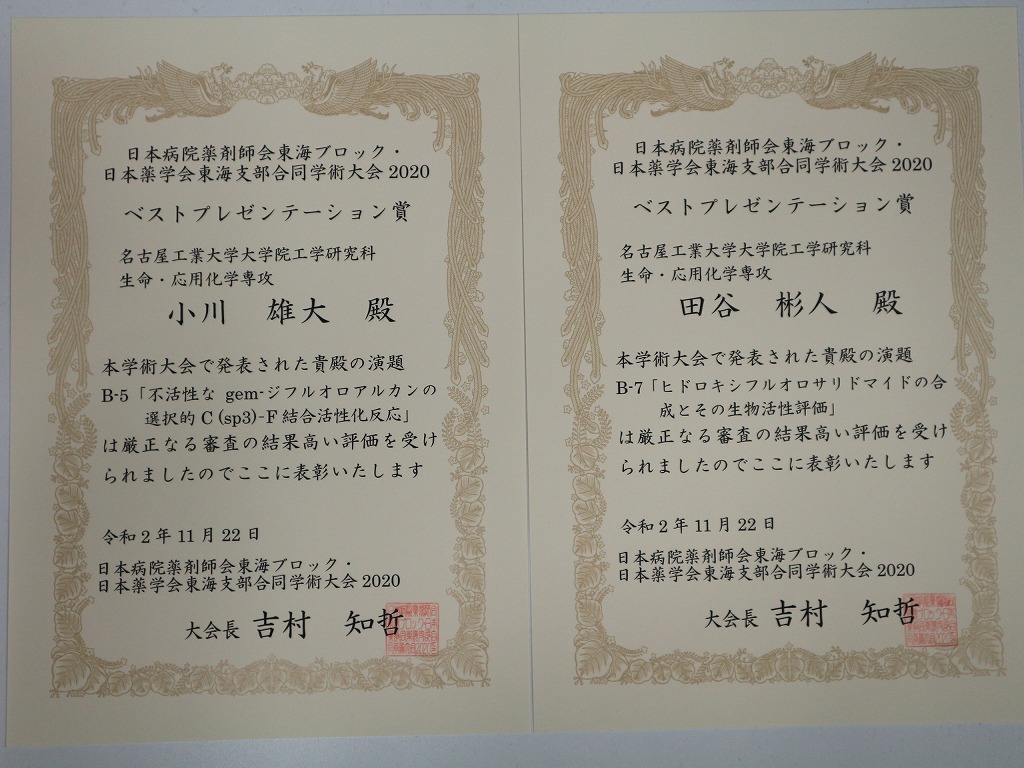 日本病院薬剤師会東海ブロック・
日本薬学会東海支部合同学術大会2020
ベストプレゼンテーション賞
名古屋工業大学大学院工学研究科
生命・応用化学専攻
小川 雄大 殿
本学術大会で発表された貴殿の演題
B-5「不活性な gem-ジフルオロアルカンの
選択的C(sp3)-F結合活性化反応」
は厳正なる審査の結果高い評価を受け
られましたのでここに表彰いたします
令和2年11月22日
日本病院薬剤師会東海ブロック・
日本薬学会東海支部合同学術大会2020
大会長 吉村 知哲
日本病院薬剤師会東海ブロック・
日本薬学会東海支部合同学術大会2020
ベストプレゼンテーション賞
名古屋工業大学大学院工学研究科
生命・応用化学専攻
田谷 彬人 殿
本学術大会で発表された貴殿の演題
B-7「ヒドロキシフルオロサリドマイドの合
成とその生物活性評価」
は厳正なる審査の結果高い評価を受け
られましたのでここに表彰いたします
令和2年11月22日
日本病院薬剤師会東海ブロック・
日本薬学会東海支部合同学術大会2020
大会長 吉村 知哲